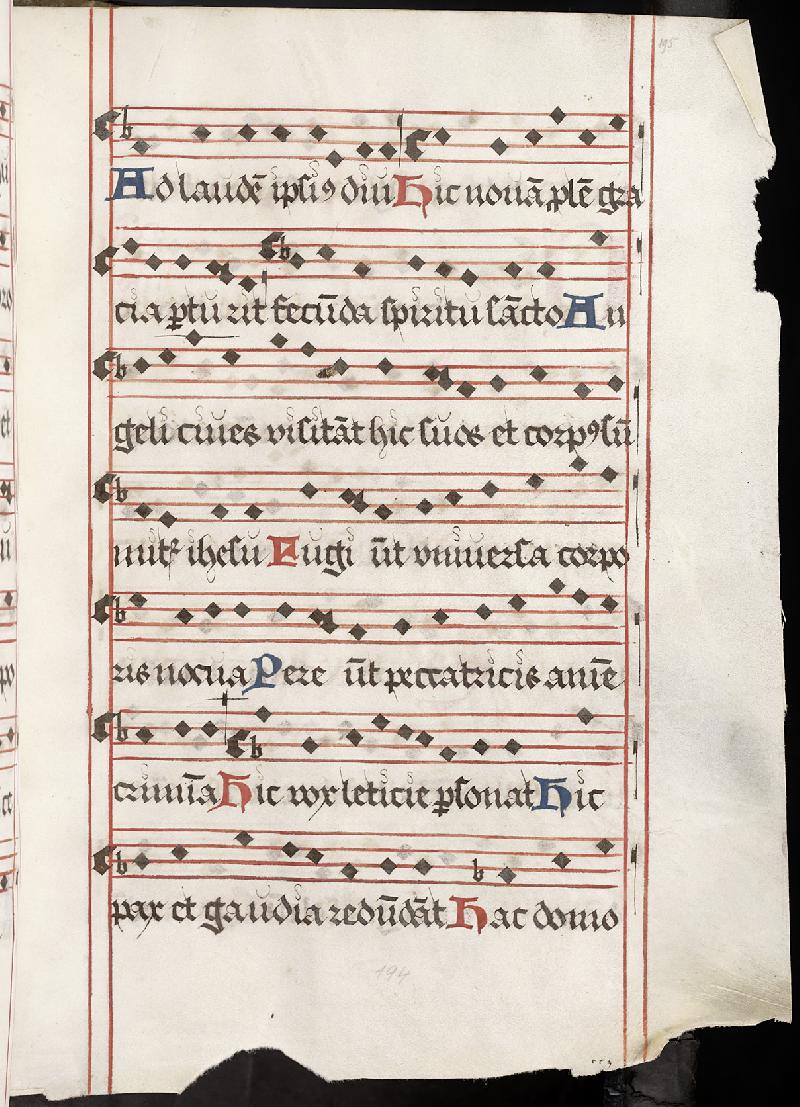 195
Ad laudē ipsiꝰ diui Hic nouā ꝓlē gra
cia ꝑtu rit fecūda spiritu sācto An
geli ciues visitāt hic suos et corpꝰ sū
ihesu Fugi ūt vniuersa corpo
ris nocua Pere ūt peccatricis anīe
crimīa Hic vox leticie ꝑsonat Hic
pax et gaudia redūdāt Hac domo
194